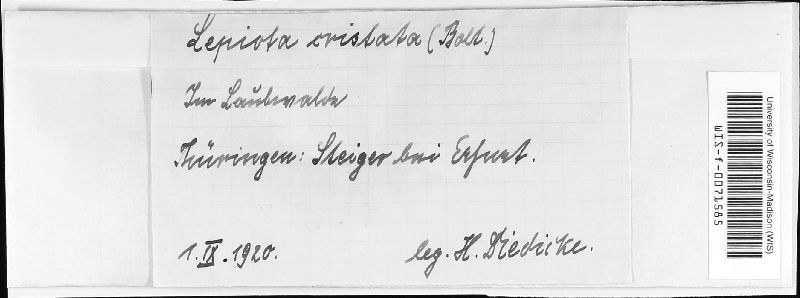 Lepiota cristata (Bolt.)
Im Laubwalde
Thüringen: Steiger bei Erfurt.
1. IX. 1920.
leg. H. Diedicke.
University of Wisconsin-Madison (WIS)
WIS-f-0071585